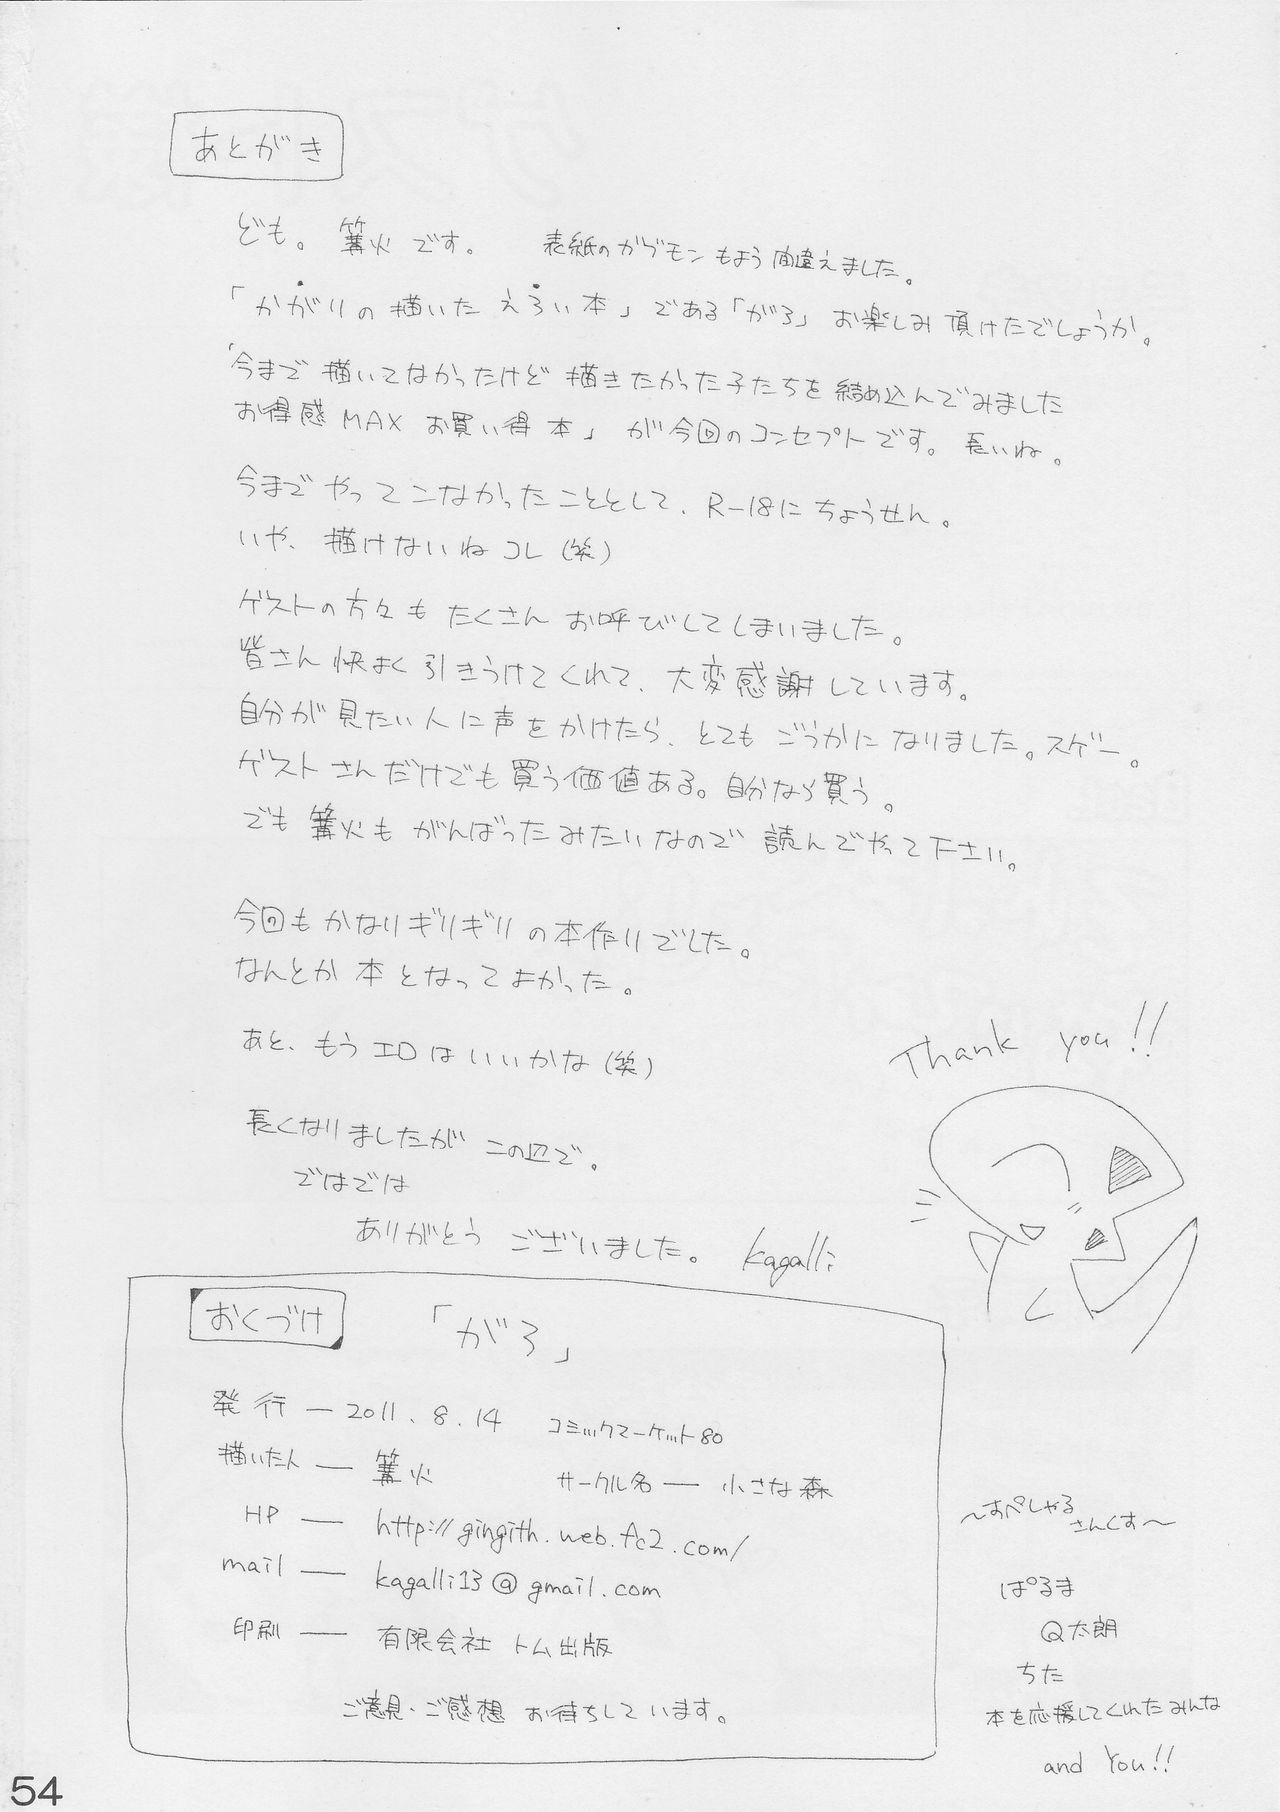 あとがき
ども。篝火です。 表紙のガブモンもよう間違えました。
「かがりの描いたえろい本」である「がろ」お楽しみ頂けたでしょうか。
「今まで描いてなかったけど描きたかった子たちを結め込んでみました
お得感MAXお買い得本」が今回のコンセプトです。長いね。
今までやってこなかったこととして、R-18にちょうせん。
いや、描けないねコレ(笑)
ゲストの方々もたくさんお呼びしてしまいました。
皆さん快よく引きうけてくれて、大変感謝しています。
自分が見たい人に声をかけたら、とてもごうかになりました。スゲー。
ゲストさんだけでも買う価値ある。自分なら買う。
でも篝火もがんばったみたいなので読んでやって下さい。
今回もかなりギリギリの本作りでした。
なんとか本となってよかった。
あと、もうエロはいいかな(笑)
長くなりましたがこの辺で。
ではでは
ありがとうございました。 kagalli
Thank you!!
おくづけ 「がろ」
発行 — 2011.8.14 コミックマーケット80
描いた人 — 篝火 サークル名 — 小さな森
HP — http://gingith.web.fc2.com/
mail — kagalli13@gmail.com
印刷 — 有限会社 トム出版
ご意見・ご感想お待ちしています。
〜すぺしゃる
さんくす〜
ぱるま
Q太朗
ちた
本を応援してくれたみんな
and You!!
54